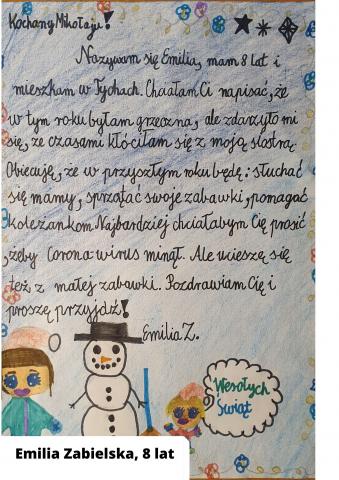 Kochany Mikołaju!
Nazywam się Emilia, mam 8 lat i
mieszkam w Tychach. Chciałam Ci napisać, że
w tym roku byłam grzeczna, ale zdarzyło mi
się, że czasami kłóciłam się z moją siostrą.
Obiecuję, że w przyszłym roku będę: słuchać
się mamy, sprzątać swoje zabawki, pomagać
koleżankom. Najbardziej chciałabym Cię prosić
żeby Corona-wirus minął. Ale ucieszę się
też z małej zabawki. Pozdrawiam Cię i
proszę przyjdź!
Emilia Z.
Wesołych
Świąt
Emilia Zabielska, 8 lat